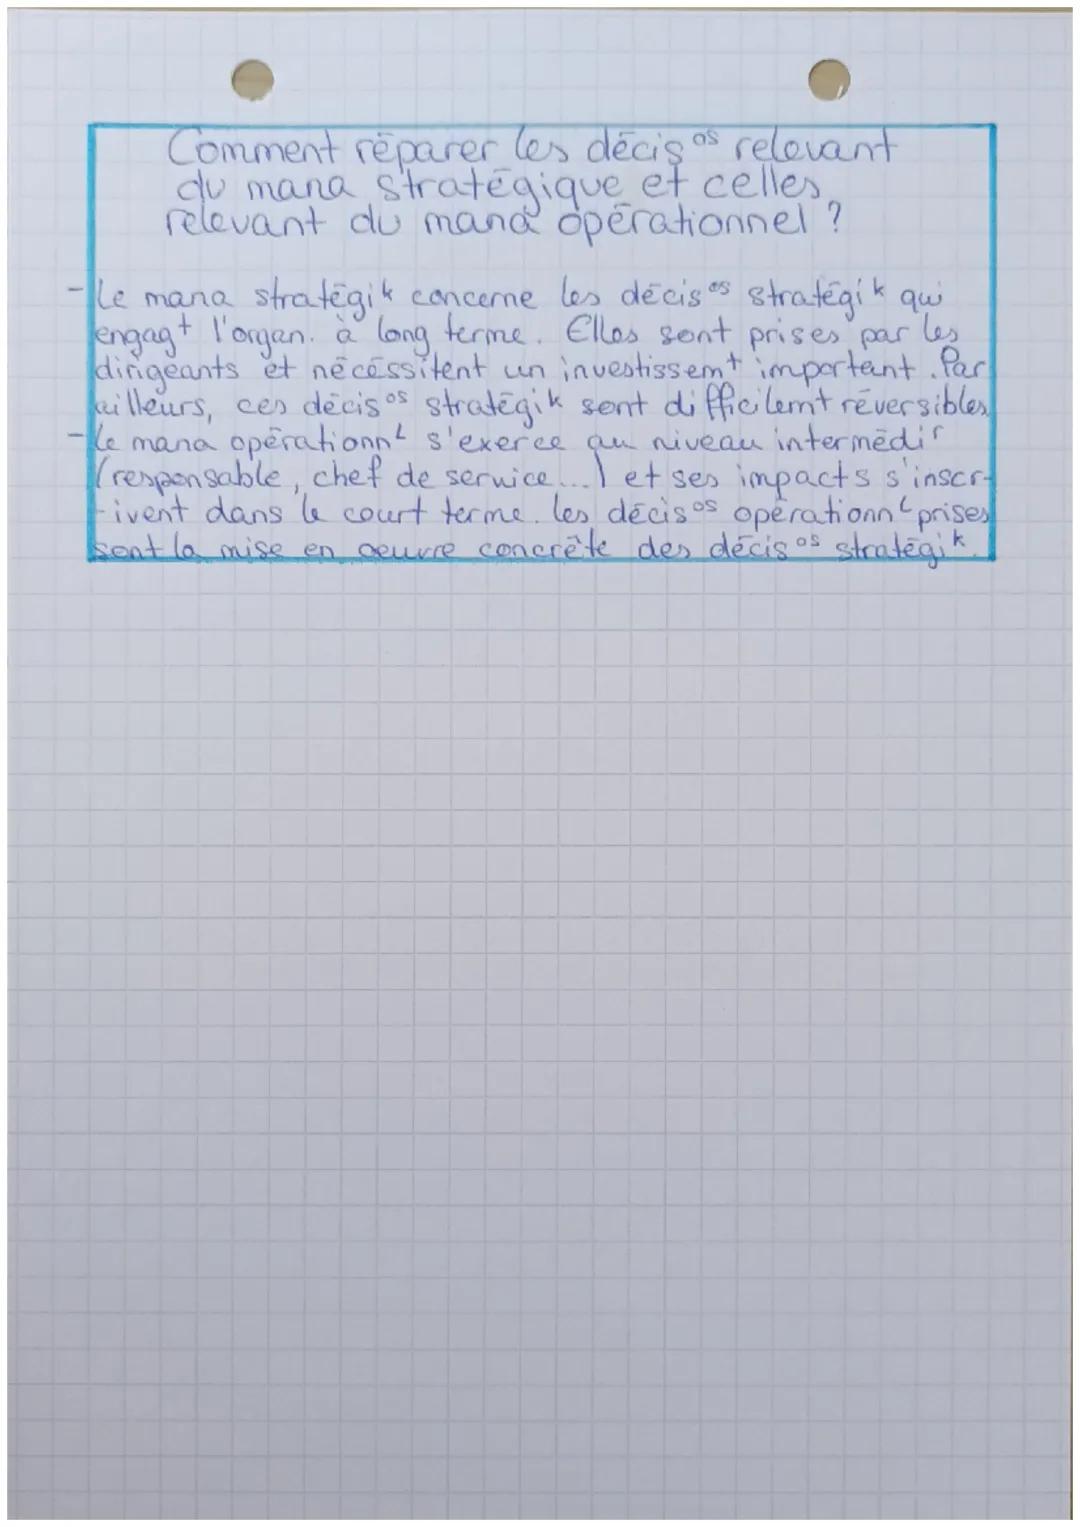 Comment réparer les décis os relevant
du mana stratégique et celles
relevant du mana opérationnel ?
- Le mana stratégik concerne les décis os stratégik qui
engagt l'organ. à long terme. Elles sont prises par les
dirigeants et nécéssitent un investissemt important. Par
ailleurs, ces décis os stratégik sont difficilemt réversibles
- Le mana opérationnL s'exerce au niveau intermédir
(responsable, chef de service...) et ses impacts s'inscr-
-ivent dans le court terme. les décis os opérationnL prises
sont la mise en oeuvre concrête des décis os stratégik.